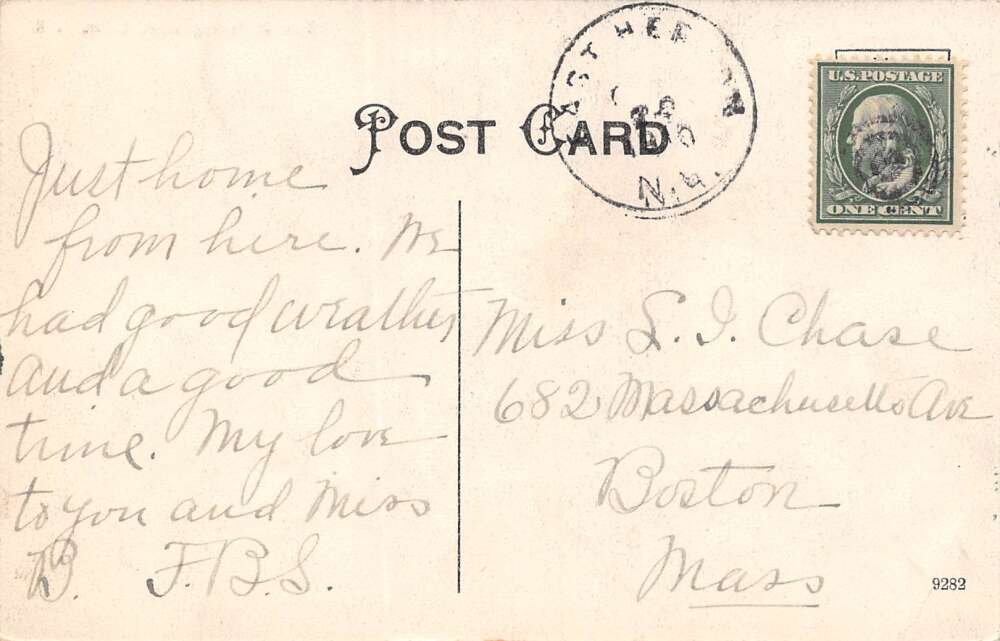 POST CARD
N.Y.
U.S. POSTAGE
ONE CENT
Just home
from here. We
had good weather
and a good
time. My love
to you and Miss
B. F.B.S.
Miss L. I. Chase
682 Massachusetts Ave
Boston
Mass
9282